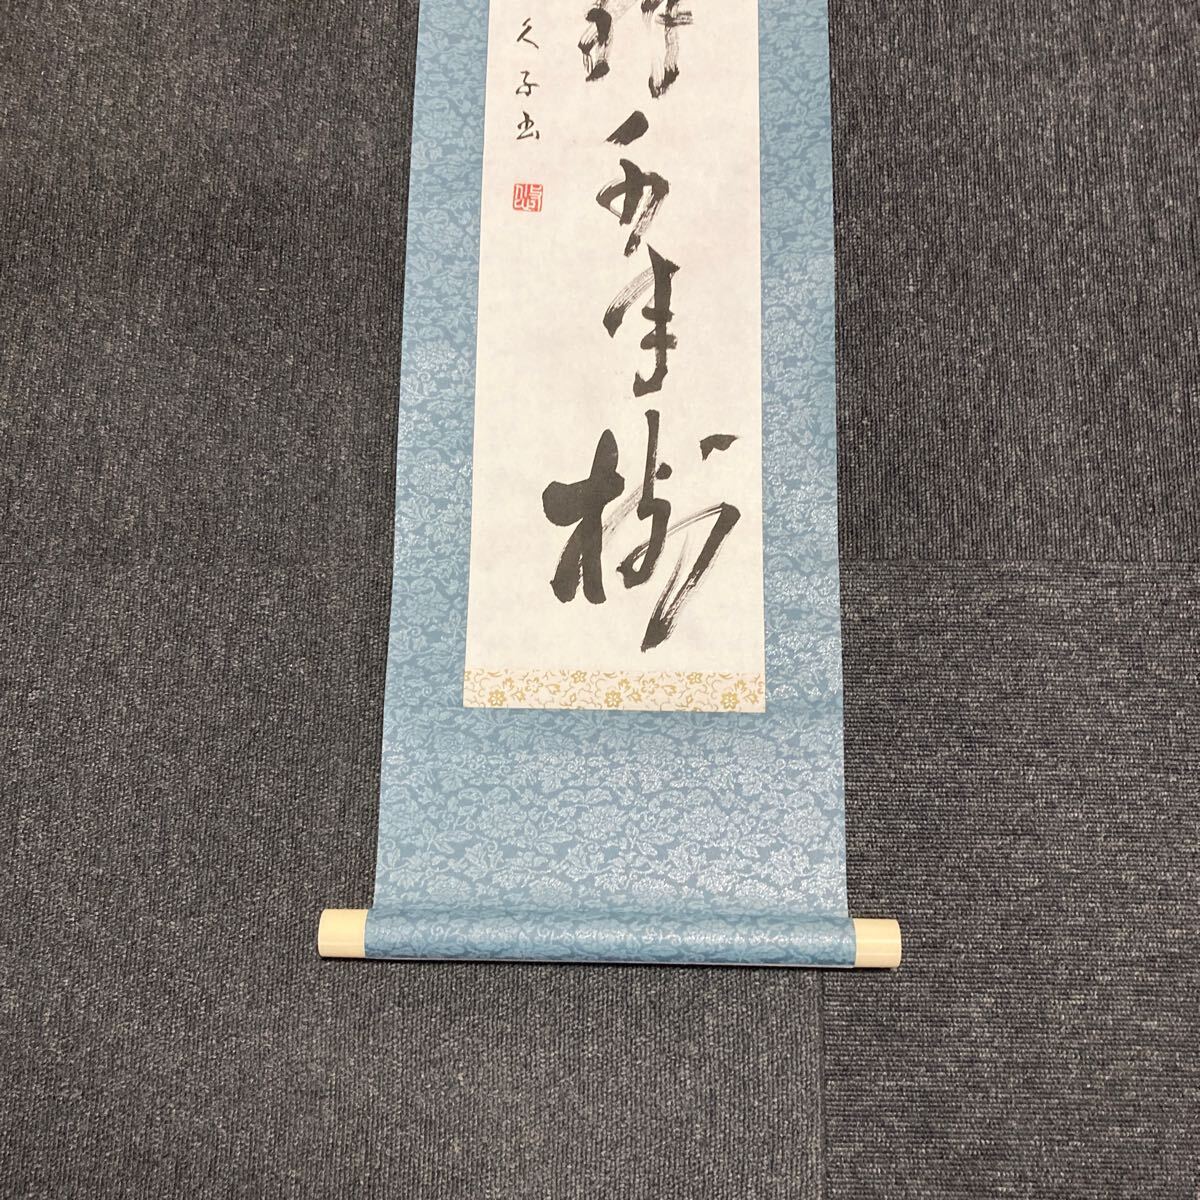 千年樹
久子書